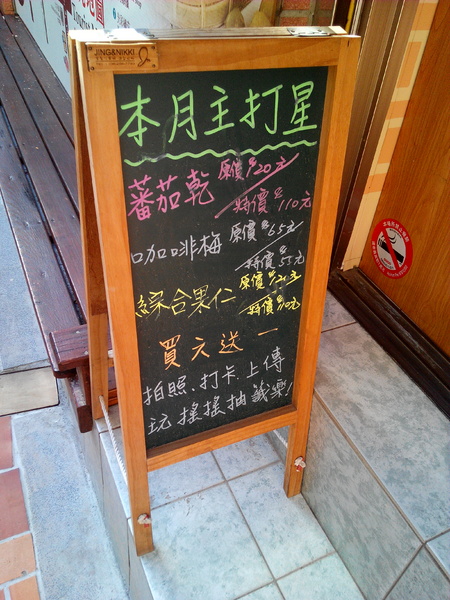 JING&NIKKI
本月主打星
蕃茄乾 原價 120元
特價 110元
咖啡梅 原價 65元
特價 55元
綜合果仁 原價
特價
買六送一
拍照.打卡.上傳
玩搖搖抽籤樂!